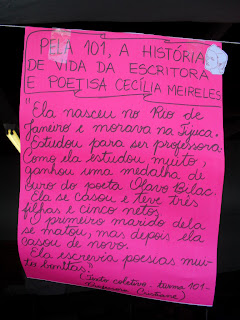 PELA 101, A HISTÓRIA
DE VIDA DA ESCRITORA
E POETISA CECÍLIA MEIRELES
"Ela nasceu no Rio de
Janeiro e morava na Tijuca.
Estudou para ser professora.
Como ela estudou muito,
ganhou uma medalha de
ouro do poeta Olavo Bilac.
Ela se casou e teve três
filhas e cinco netos.
O primeiro marido dela
se matou, mas depois ela
casou de novo.
Ela escrevia poesias mui-
tu bonitas"
(Texto coletivo, turma 101-
Professora Cristiane)